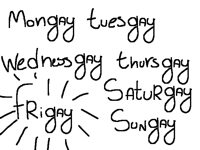 Mongay tuesgay
Wednesgay thursgay
fRigay SatuRgay
Sungay